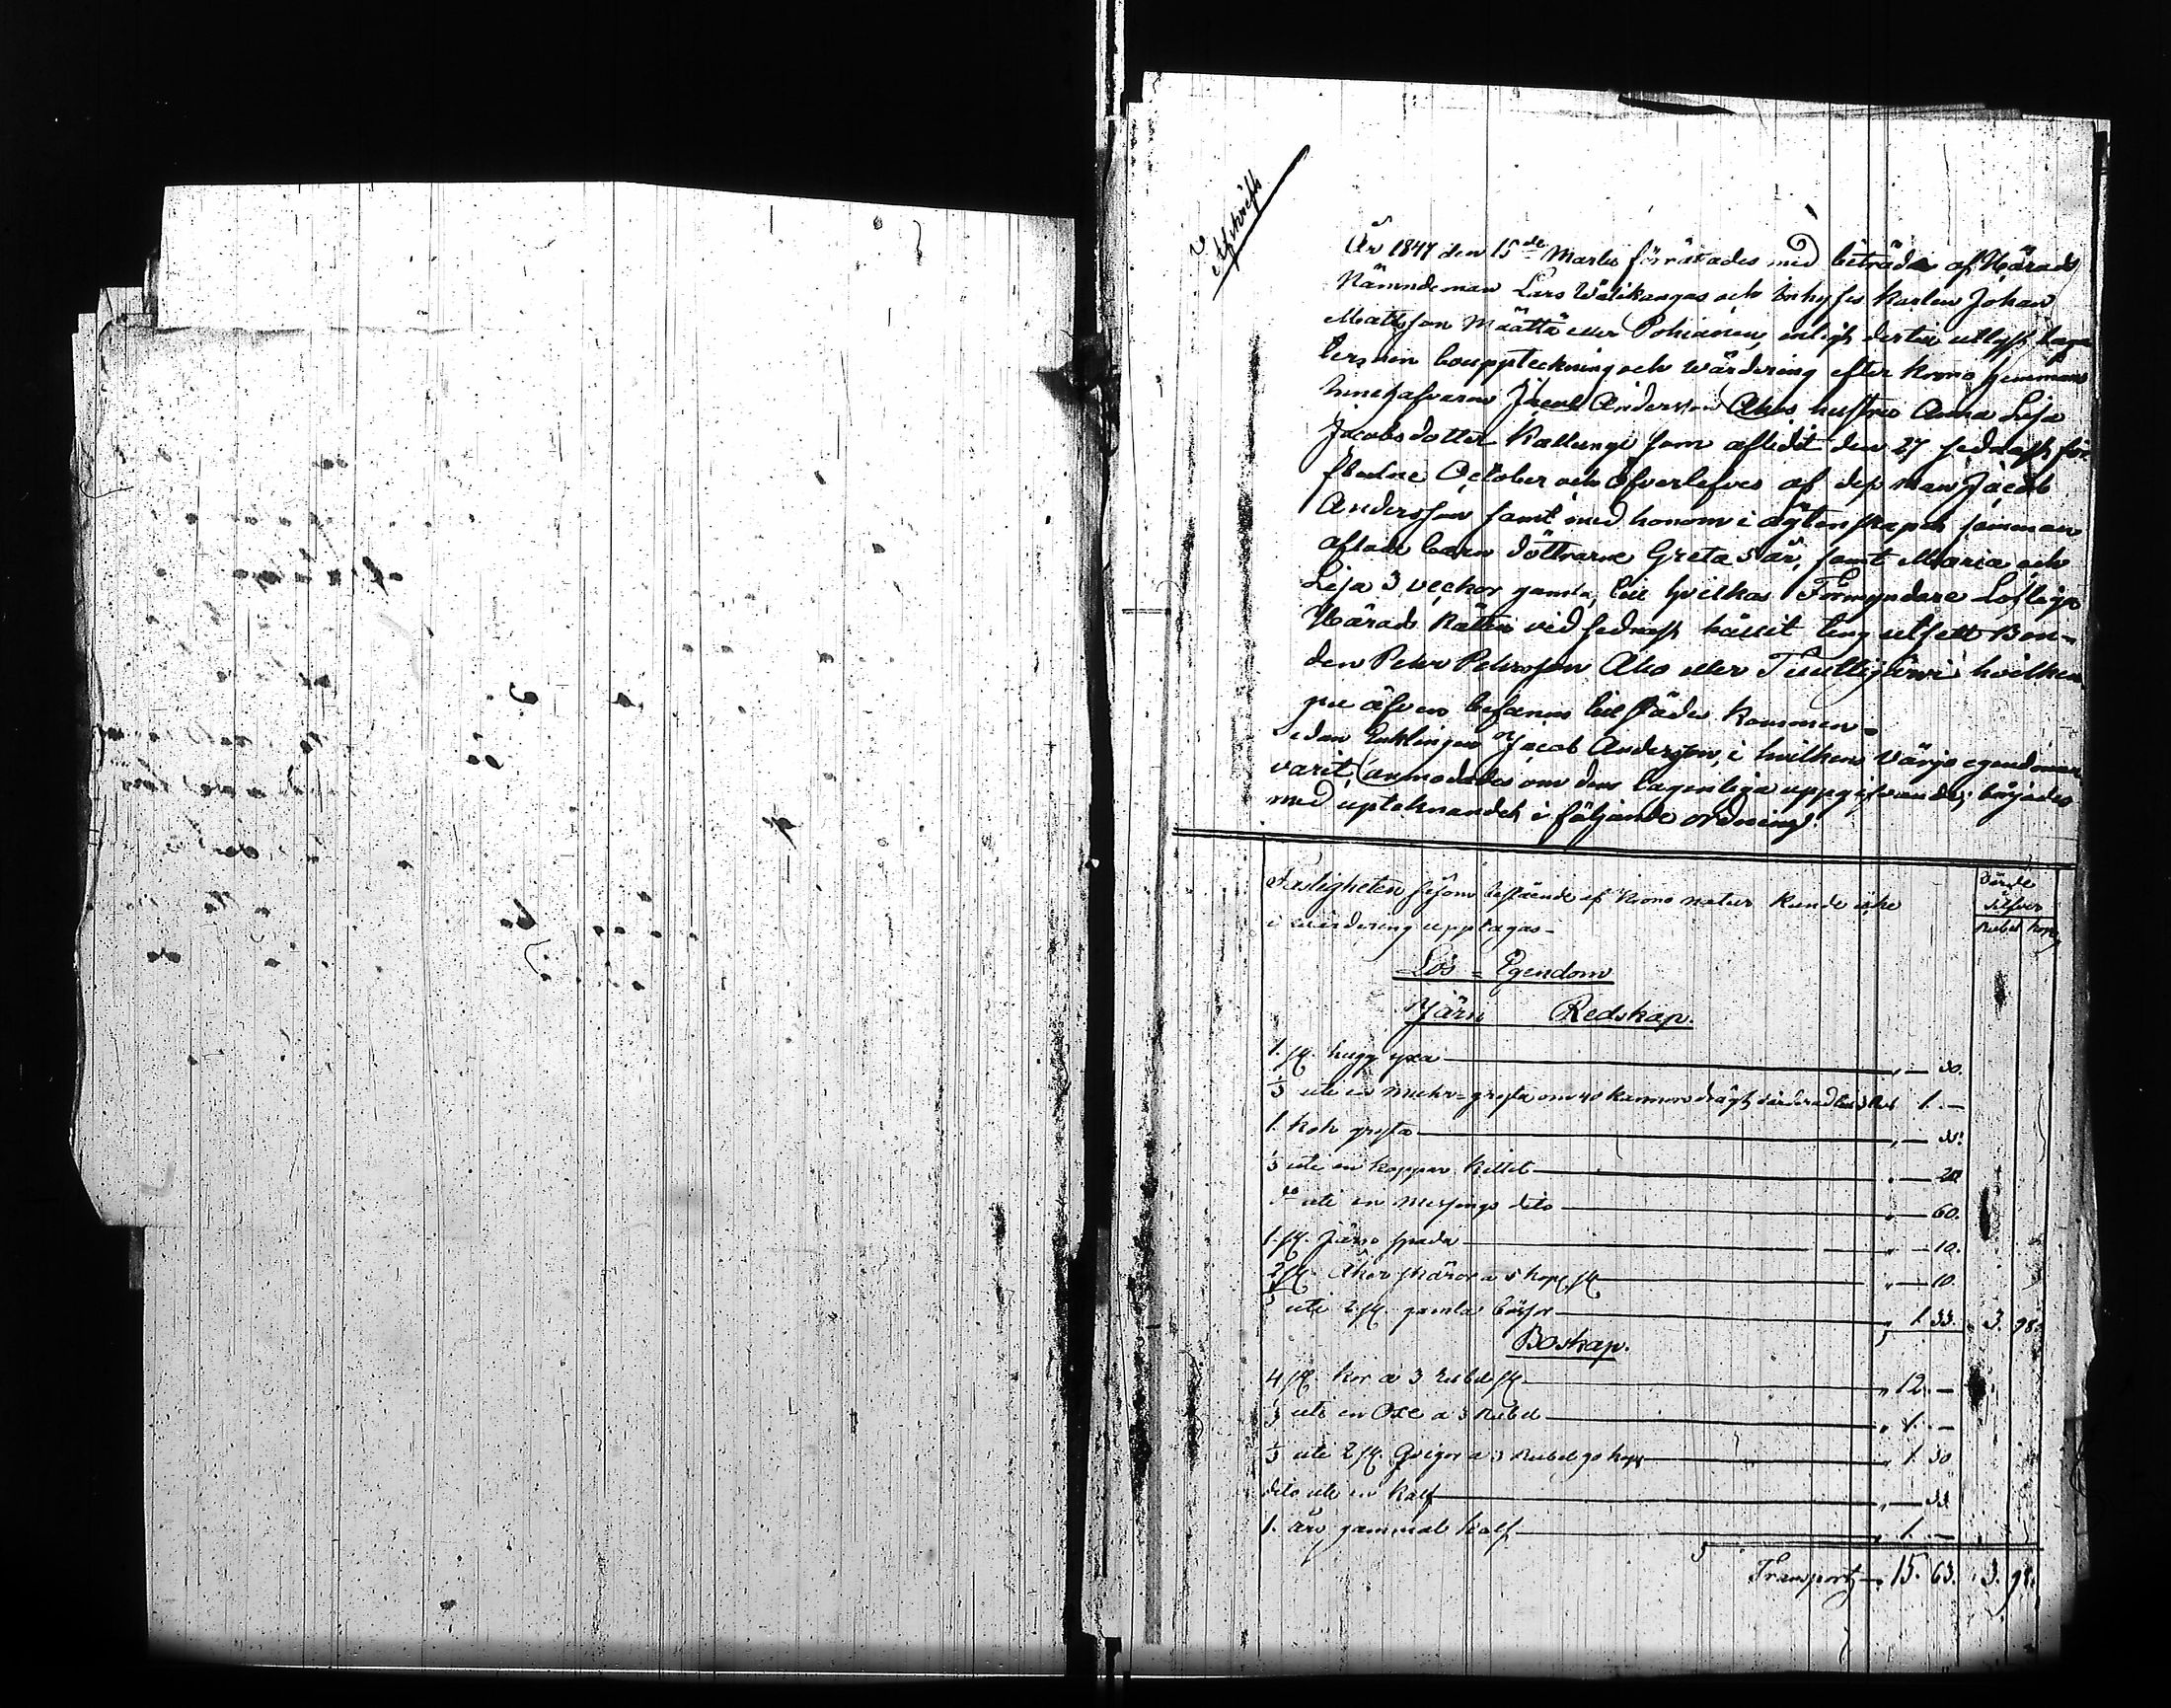 Afskrift
År 1847 den 15de Martii förrättades med biträde af Härads
Nämndeman Lars Wälikangas och Inhyses karlen Johan
Mattsson Määttä eller Pohianen, enligt dertill utlyst laga
termin bouppteckning och wärdering efter krono hemmans
innehafvaren Jacob Andersson Ahos hustru Anna Lisa
Jacobsdotter Kallunge som aflidit den 27 sednast för-
flutne October och öfverlefves af dess man Jacob
Andersson samt med honom i ägtenskapet samman
aflade barn döttrarne Greta 5 år, samt Maria och
Lisa 3 veckor gamla, till hvilkas Förmyndare Loflige
Härads Rätten vid sednast hållit ting utsett Bon-
den Petter Pettersson Aho eller Tuuttijärvi hvilken
nu äfven befanns tillstädes kommen.
Sedan Enklingen Jacob Andersson, i hvilkens värjo egendomen
varit, anmodades om dess lagenliga uppgifvande, börjades
med upteknandet i följande ordning:
Fastigheten såsom bestående af Krono natur kunde icke
i wärdering upptagas.
Värde
Silfver
Rubel kop.
Lös = Egendom
Järn Redskap.
1. st. hugg yxa " — 30.
1/3 uti en muhr-gryta om 40 kannors drägt värderad till 3 Rub. 1. —
1. kok gryta " —
1/3 uti en koppar kittel " — 20
do uti en messings dito " — 60.
1. st. järn spada " — 10.
2 st. åker skäror a 5 kop. st. " — 10.
1/3 uti 2 st. gamla bössor " 1. 33. " 3. 98.
Boskap.
4 st. kor a 3 rubel st. " 12. —
1/3 uti en Oxe a 3 Rubel " 1. —
1/3 uti 2 st. Qvigor a 3 Rubel 90 kop. " 1. 30
dito uti en kalf " — 33
1. års gammal kalf " 1. —
Transport " 15. 63. " 3. 98.